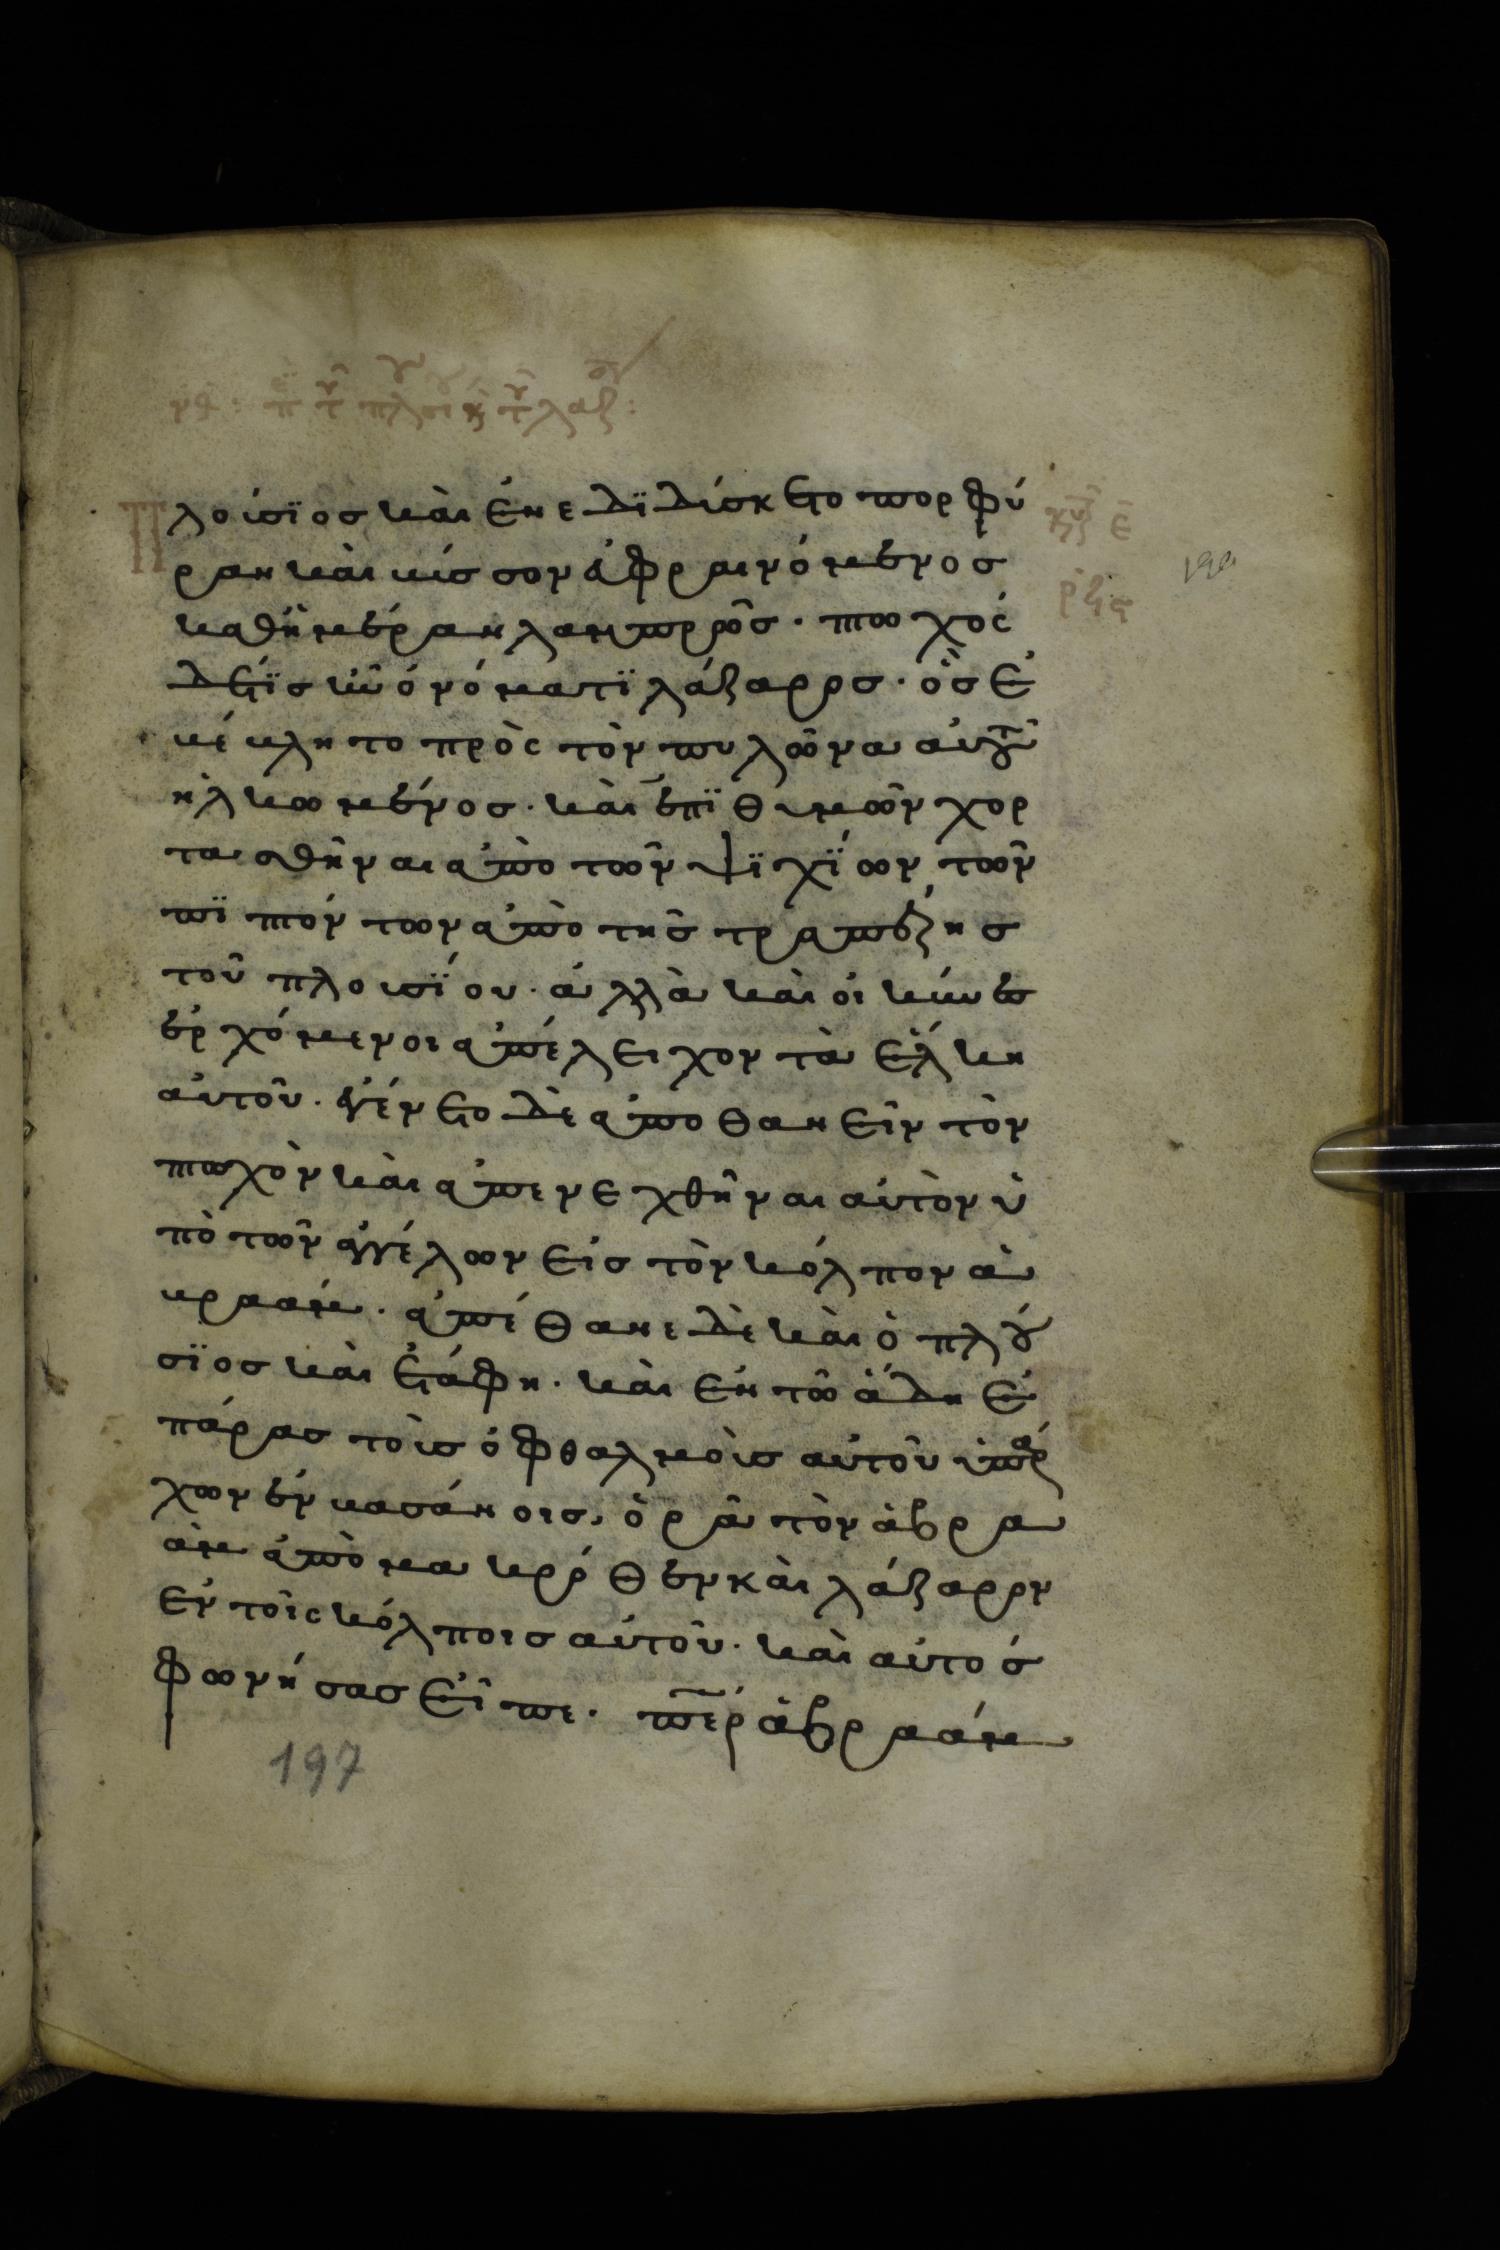 νθ: π τ πλου κ τ λαζ:
Πλούσϊος καὶ ἐνεδϊδύσκετο πορφύ
ραν καὶ βύσσον εὐφραινόμενος
καθημέραν λαμπρῶς· πτωχός
δέ τϊς ἦν ὀνόματϊ λάζαρος· ὃς ἐ
βέβλητο πρὸς τὸν πυλῶνα αὐτοῦ
ἡλκωμένος· καὶ ἐπϊθυμῶν χορ
τασθῆναι ἀπὸ τῶν ψϊχΐων τῶν
πϊπτόντων ἀπὸ τῆς τραπέζης
τοῦ πλουσΐου· ἀλλὰ καὶ οἱ κύνες
ἐρχόμενοι ἀπέλειχον τὰ ἕλκη
αὐτοῦ· ἐγένετο δὲ ἀποθανεῖν τὸν
πτωχὸν καὶ ἀπενεχθῆναι αὐτὸν ὑ
πὸ τῶν ἀγγέλων εἰς τὸν κόλπον ἀ
βραάμ· ἀπέθανε δὲ καὶ ὁ πλού
σϊος καὶ ἐτάφη· καὶ ἐν τῶ ἅδη ἐ
πάρας τοὺς ὀφθαλμοὺς αὐτοῦ ὑπάρ
χων ἐν βασάνοις, ὁρᾶ τὸν ἀβρα
ὰμ ἀπὸ μακρόθεν καὶ λάζαρον
ἐν τοῖς κόλποις αὐτοῦ· καὶ αὐτός
φωνήσας εἶπε· περ ἀβραάμ
197